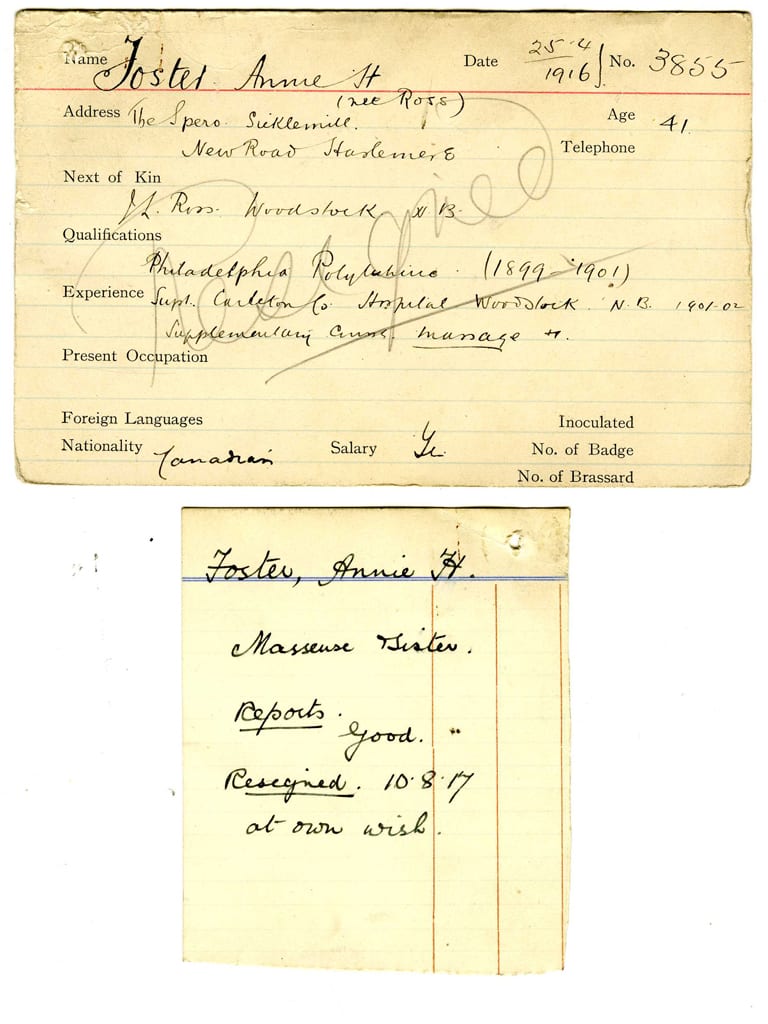 Name Foster Annie H Date 25·4 1916 No. 3855
(nee Ross)
Address The Spero Sicklemill. Age 41.
New Road Haslemere Telephone
Next of Kin
J.L. Ross. Woodstock N B.
Resigned
Qualifications
Philadelphia Polyclinic. (1899–1901)
Experience Supt. Carleton Co. Hospital Woodstock. N.B. 1901-02
Supplementary massage
Present Occupation
Foreign Languages Inoculated
Nationality Canadian Salary No. of Badge
No. of Brassard
Foster, Annie H.
Masseuse Sister.
Reports.
Good.
Resigned. 10·8·17
at own wish.